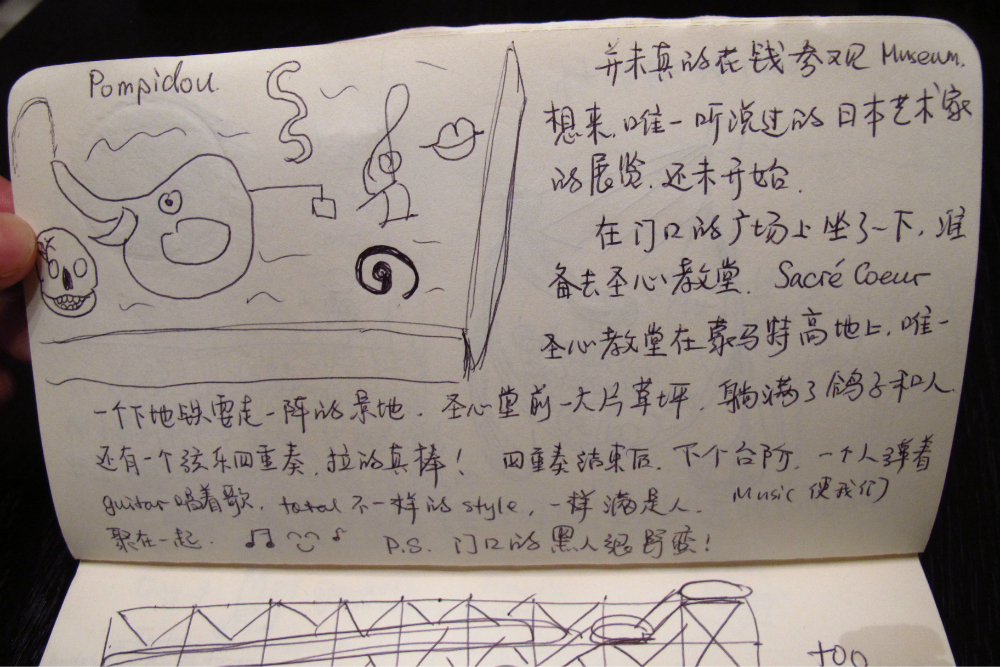 Pompidou.
并未真的花钱参观 Museum.
想来,唯一听说过的日本艺术家
的展览,还未开始.
在门口的广场上坐了一下,准
备去圣心教堂. Sacré Coeur
圣心教堂在蒙马特高地上,唯一
一个下地铁要走一阵的景地. 圣心堂前一大片草坪,躺满了鸽子和人.
还有一个弦乐四重奏,拉的真棒! 四重奏结束后,下个台阶,一个人弹着
guitar 唱着歌, total 不一样的 style, 一样满是人. Music 使我们
聚在一起. P.S. 门口的黑人超野蛮!
too